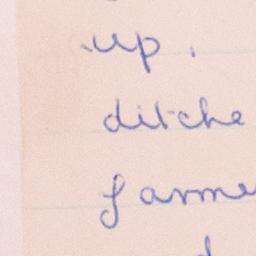 up.
ditche
farme